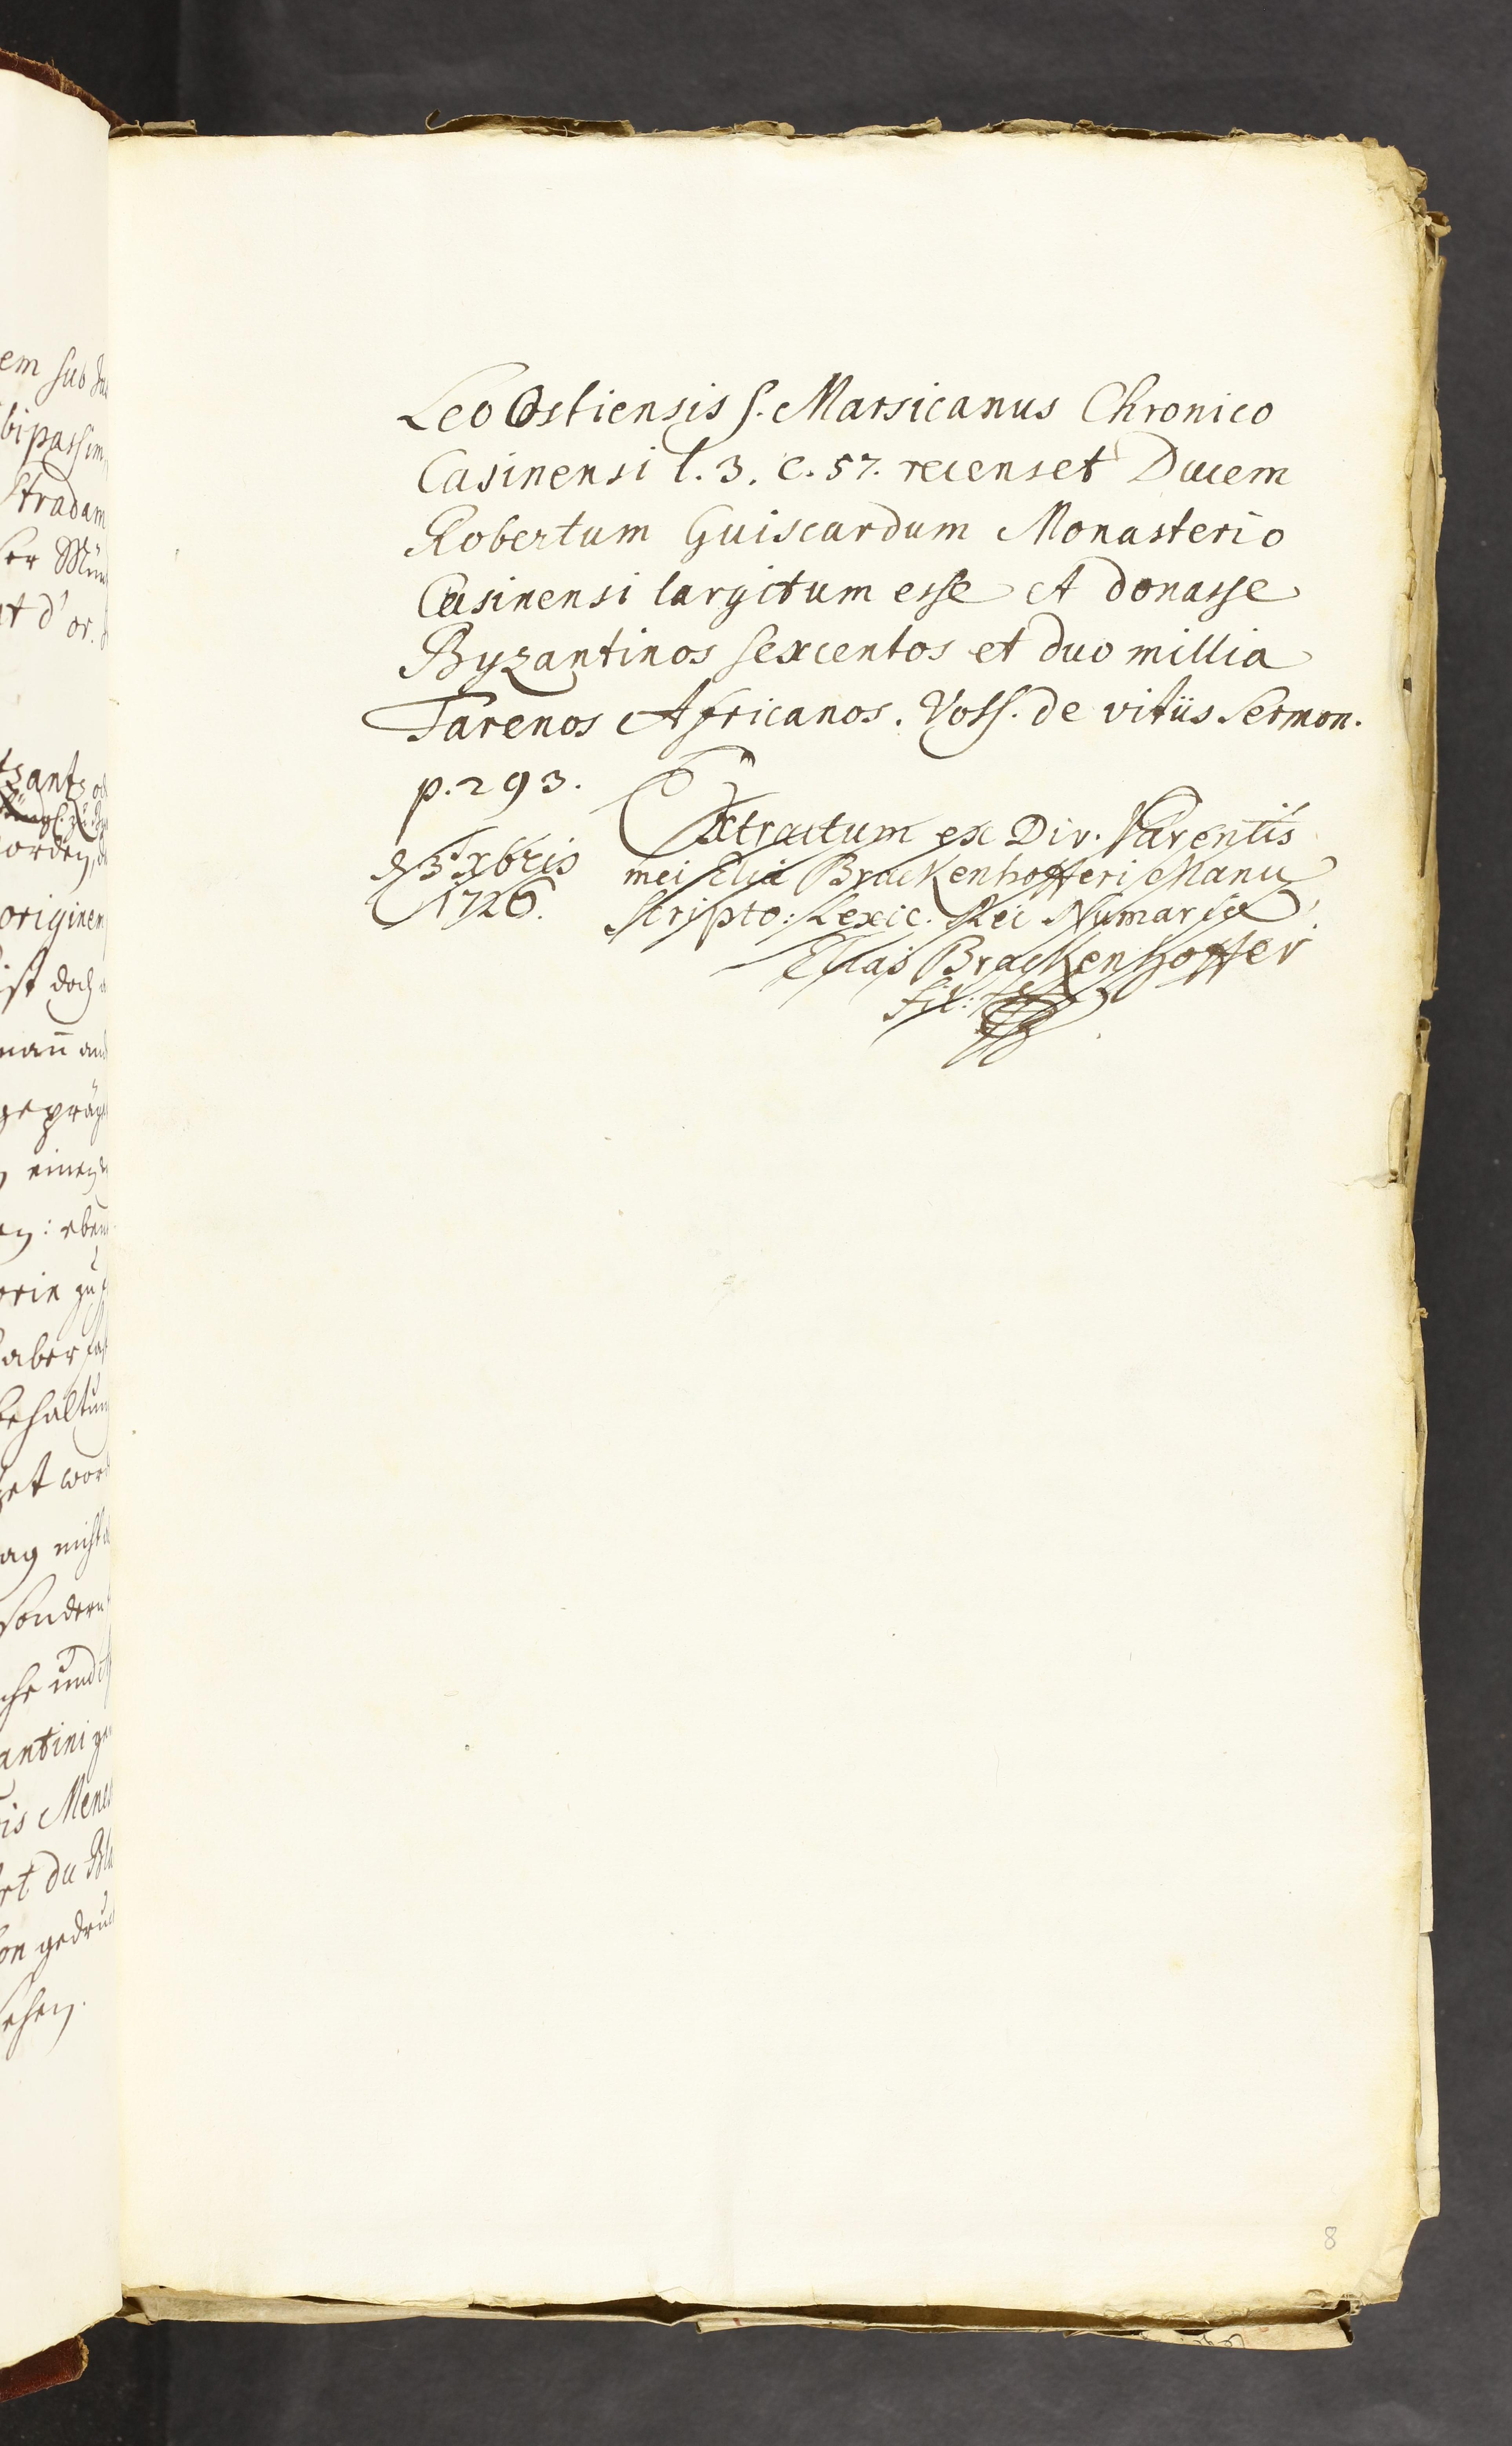 Leo Ostiensis s. Marsicanus Chronico
Casinensi l. 3. c. 57. recenset Ducem
Robertum Guiscardum Monasterio
Casinensi largitum esse et donasse
Byzantinos sexcentos et duo millia
Tarenos Africanos. Voss. de vitiis Sermon.
p. 293.
Extractum ex Div. Parentis
mei Eliæ Brackenhofferi Manu
scripto: Lexic. Rei Numariæ
Elias Brackenhoffer
fil:
d. 3 xbris
1726.
8
em sub
bi passim
Stradam
er
t d'or.
originen
ist doch
geprä
einen
aber
behaltun
sondern
und
antini
is Mene
du
gedru